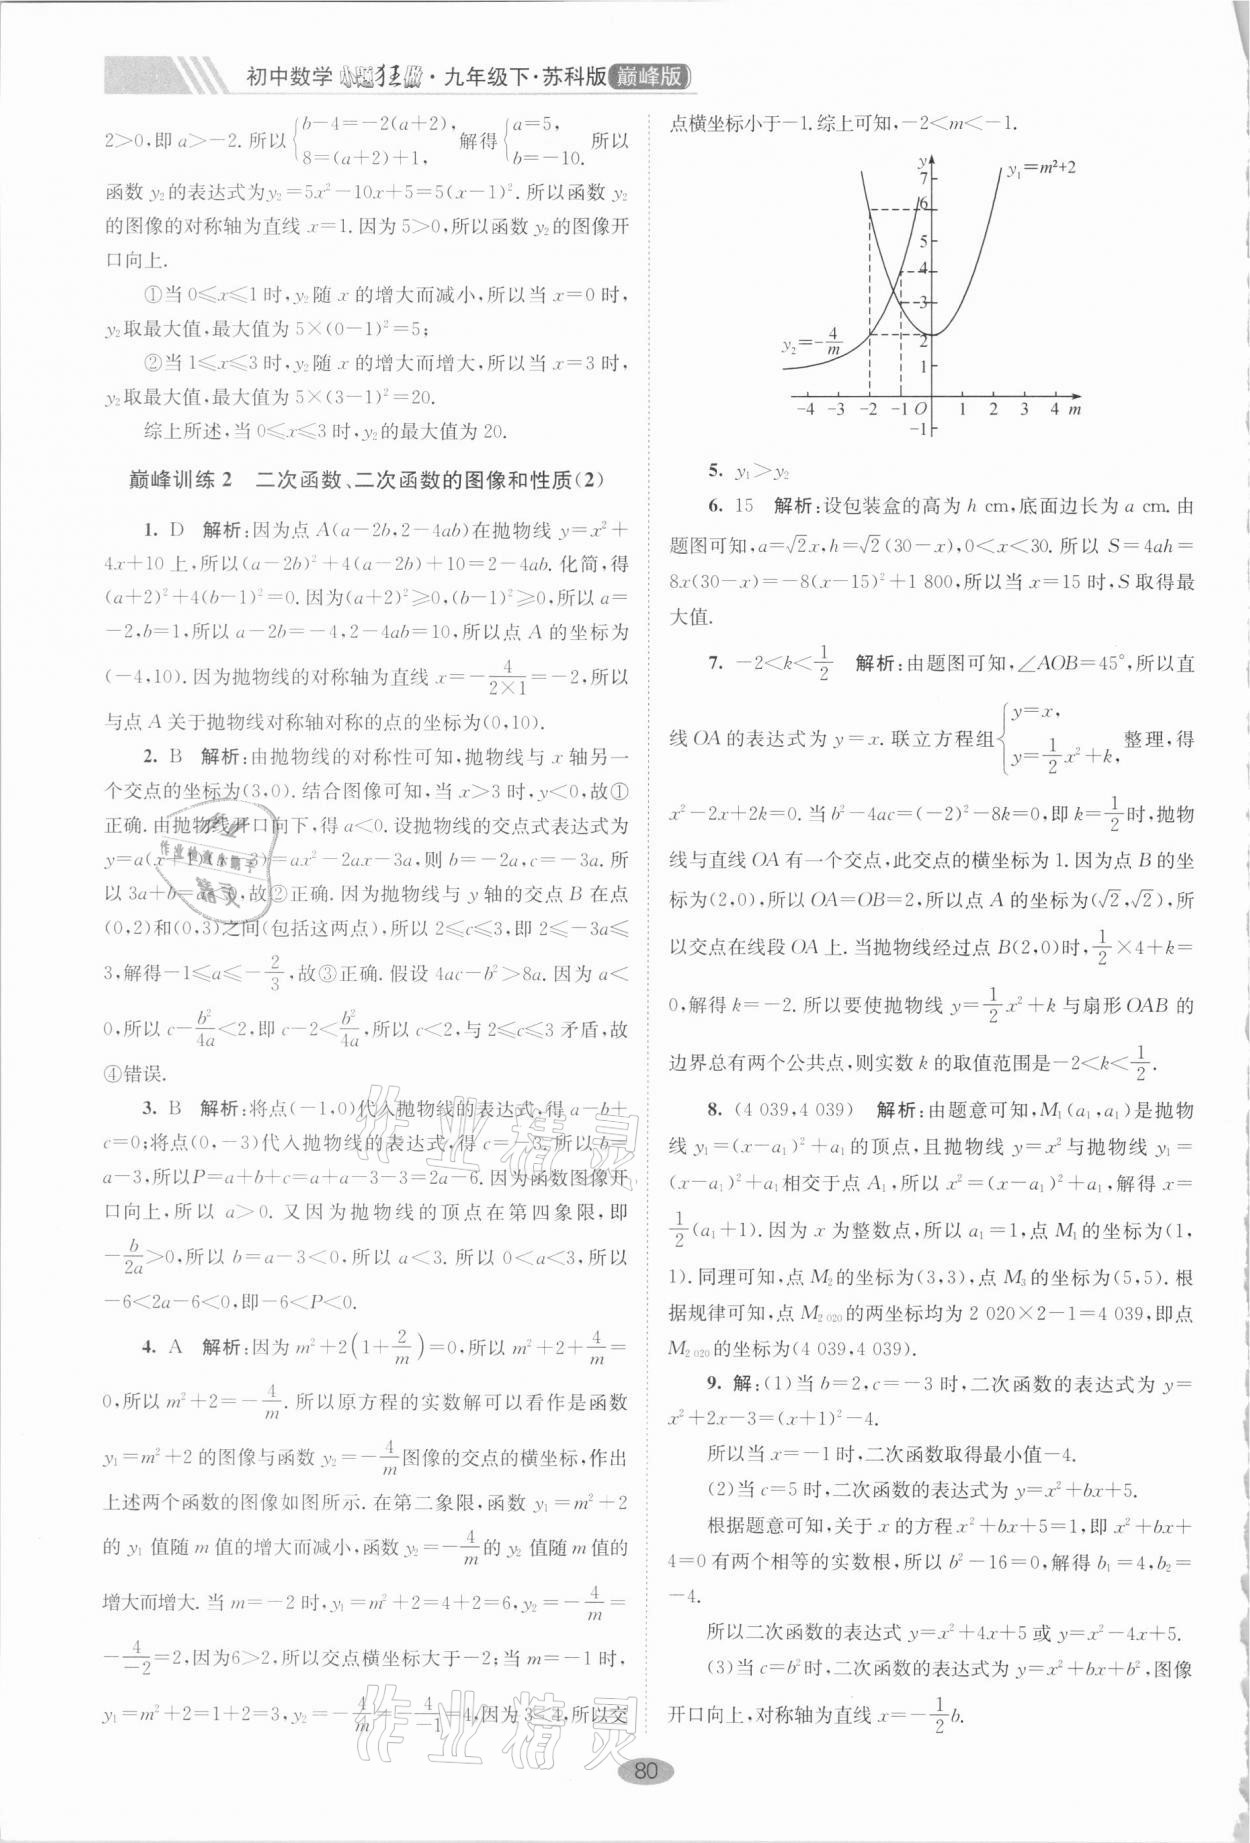 初中数学 小题狂做·九年级下·苏科版 巅峰版
2>0,即 a>-2. 所以 { b-4=-2(a+2), 8=(a+2)+1, 解得 { a=5, b=-10. 所以
函数 y₂的表达式为y₂=5x²-10x+5=5(x-1)². 所以函数 y₂
的图像的对称轴为直线 x=1. 因为 5>0,所以函数 y₂的图像开
口向上.
①当 0⩽x⩽1 时,y₂随 x 的增大而减小,所以当 x=0 时,
y₂取最大值,最大值为 5×(0-1)²=5;
②当 1⩽x⩽3 时,y₂随 x 的增大而增大,所以当 x=3 时,
y₂取最大值,最大值为 5×(3-1)²=20.
综上所述,当 0⩽x⩽3 时,y₂的最大值为 20.
巅峰训练 2 二次函数、二次函数的图像和性质(2)
1. D 解析:因为点 A(a-2b,2-4ab)在抛物线 y=x²+
4x+10 上,所以(a-2b)²+4(a-2b)+10=2-4ab. 化简,得
(a+2)²+4(b-1)²=0. 因为(a+2)²⩾0,(b-1)²⩾0,所以 a=
-2,b=1,所以 a-2b=-4,2-4ab=10,所以点 A 的坐标为
(-4,10). 因为抛物线的对称轴为直线 x=-4/(2×1)=-2,所以
与点 A 关于抛物线对称轴对称的点的坐标为(0,10).
2. B 解析:由抛物线的对称性可知,抛物线与 x 轴另一
个交点的坐标为(3,0). 结合图像可知,当 x>3 时,y<0,故①
正确. 由抛物线开口向下,得 a<0. 设抛物线的交点式表达式为
y=a(x+1)(x-3)=ax²-2ax-3a,则 b=-2a,c=-3a. 所
以 3a+b=a<0,故②正确. 因为抛物线与 y 轴的交点 B 在点
(0,2)和(0,3)之间(包括这两点),所以 2⩽c⩽3,即 2⩽-3a⩽
3,解得-1⩽a⩽-2/3,故③正确. 假设 4ac-b²>8a. 因为 a<
0,所以 c-b²/4a<2,即 c-2<b²/4a,所以 c<2,与 2⩽c⩽3 矛盾,故
④错误.
3. B 解析:将点(-1,0)代入抛物线的表达式,得 a-b+
c=0;将点(0,-3)代入抛物线的表达式,得 c=-3. 所以 b=
a-3,所以P=a+b+c=a+a-3-3=2a-6. 因为函数图像开
口向上,所以 a>0. 又因为抛物线的顶点在第四象限,即
-b/2a>0,所以 b=a-3<0,所以 a<3. 所以 0<a<3,所以
-6<2a-6<0,即-6<P<0.
4. A 解析:因为 m²+2(1+2/m)=0,所以 m²+2+4/m=
0,所以 m²+2=-4/m. 所以原方程的实数解可以看作是函数
y₁=m²+2 的图像与函数 y₂=-4/m图像的交点的横坐标,作出
上述两个函数的图像如图所示. 在第二象限,函数 y₁=m²+2
的 y₁ 值随 m 值的增大而减小,函数 y₂=-4/m的 y₂ 值随 m 值的
增大而增大. 当 m=-2 时,y₁=m²+2=4+2=6,y₂=-4/m=
-4/-2=2,因为6>2,所以交点横坐标大于-2;当 m=-1 时,
y₁=m²+2=1+2=3,y₂=-4/m=-4/-1=4,因为 3<4,所以交
点横坐标小于-1. 综上可知,-2<m<-1.
y
y₁=m²+2
7
6
5
4
3
2
1
y₂=-4/m
-4 -3 -2 -1 O 1 2 3 4 m
-1
5. y₁>y₂
6. 15 解析:设包装盒的高为 h cm,底面边长为 a cm. 由
题图可知,a=√2x,h=√2(30-x),0<x<30. 所以 S=4ah=
8x(30-x)=-8(x-15)²+1 800,所以当 x=15 时,S 取得最
大值.
7. -2<k<1/2 解析:由题图可知,∠AOB=45°,所以直
线 OA 的表达式为 y=x. 联立方程组 { y=x, y=1/2x²+k, 整理,得
x²-2x+2k=0. 当 b²-4ac=(-2)²-8k=0,即 k=1/2时,抛物
线与直线 OA 有一个交点,此交点的横坐标为 1. 因为点 B 的坐
标为(2,0),所以 OA=OB=2,所以点 A 的坐标为(√2,√2),所
以交点在线段 OA 上. 当抛物线经过点 B(2,0)时,1/2×4+k=
0,解得 k=-2. 所以要使抛物线 y=1/2x²+k 与扇形 OAB 的
边界总有两个公共点,则实数 k 的取值范围是-2<k<1/2.
8. (4 039,4 039) 解析:由题意可知,M₁(a₁,a₁)是抛物
线 y₁=(x-a₁)²+a₁的顶点,且抛物线 y=x²与抛物线 y₁=
(x-a₁)²+a₁相交于点 A₁,所以 x²=(x-a₁)²+a₁,解得 x=
1/2(a₁+1). 因为 x 为整数点,所以 a₁=1,点 M₁的坐标为(1,
1). 同理可知,点 M₂的坐标为(3,3),点 M₃的坐标为(5,5). 根
据规律可知,点 M₂ ₀₂₀的两坐标均为 2 020×2-1=4 039,即点
M₂ ₀₂₀的坐标为(4 039,4 039).
9. 解:(1)当 b=2,c=-3 时,二次函数的表达式为 y=
x²+2x-3=(x+1)²-4.
所以当 x=-1 时,二次函数取得最小值-4.
(2)当 c=5 时,二次函数的表达式为 y=x²+bx+5.
根据题意可知,关于 x 的方程 x²+bx+5=1,即 x²+bx+
4=0 有两个相等的实数根,所以 b²-16=0,解得 b₁=4,b₂=
-4.
所以二次函数的表达式 y=x²+4x+5 或 y=x²-4x+5.
(3)当 c=b²时,二次函数的表达式为 y=x²+bx+b²,图像
开口向上,对称轴为直线 x=-1/2b.
80
作业精灵
作业精灵